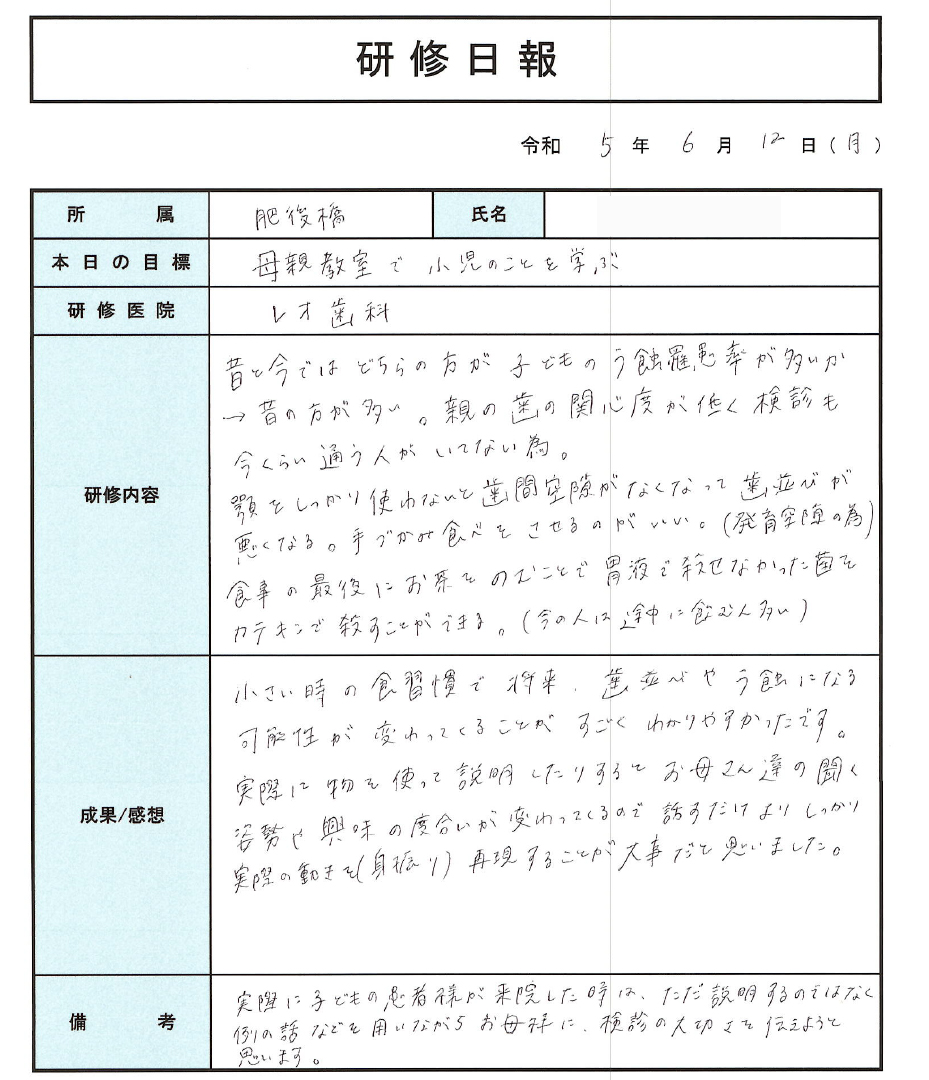 研修日報
令和 5 年 6 月 12 日 (月)
所属 肥後橋 氏名
本日の目標 母親教室で 小児のことを学ぶ
研修医院 レオ歯科
研修内容
昔と今では どちらの方が 子どものう蝕罹患率が多いか
→ 昔の方が多い。親の歯の関心度が低く検診も
今くらい通う人がいてない為。
顎をしっかり使わないと歯間空隙がなくなって歯並びが
悪くなる。手づかみ食べをさせるのがいい。(発育空隙の為)
食事の最後にお茶をのむことで胃液で殺せなかった菌を
カテキンで殺すことができる。(今の人は途中に飲む人多い)
成果/感想
小さい時の食習慣で将来、歯並びやう蝕になる
可能性が変わってくることがすごくわかりやすかったです。
実際に物を使って説明したりするとお母さん達の聞く
姿勢や興味の度合いが変わってくるので話すだけよりしっかり
実際の動きを(身振り)再現することが大事だと思いました。
備考
実際に子どもの患者様が来院した時は、ただ説明するのではなく
例の話などを用いながら お母様に、検診の大切さを伝えようと
思います。